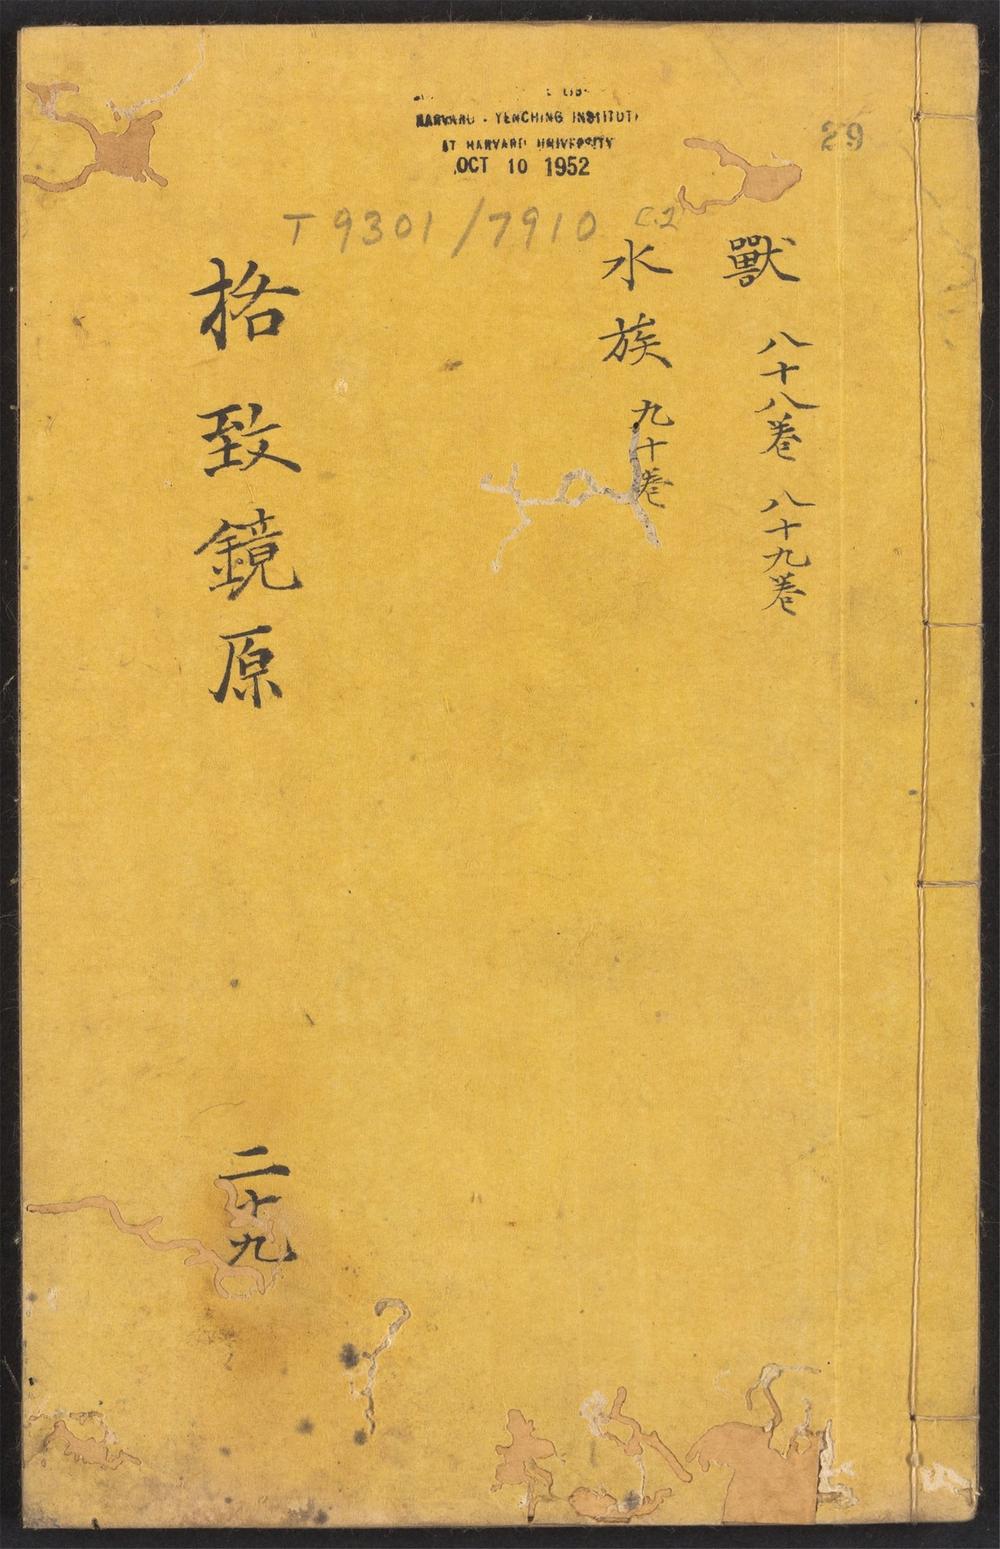 HARVARD - YENCHING INSTITUTE
AT HARVARD UNIVERSITY
OCT 10 1952
29
T 9301/7910 C.2
獸 八十八卷 八十九卷
水族 九十卷
格致鏡原
二十九